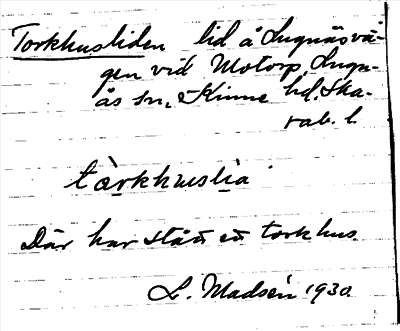 Torkhusliden lid å Lugnåsvä-
gen vid Motorp, Lugn-
ås sn, Kinne hd. Ska-
rab. l.
tàrkhuslia
Där har stått ett torkhus.
L. Madsén 1930